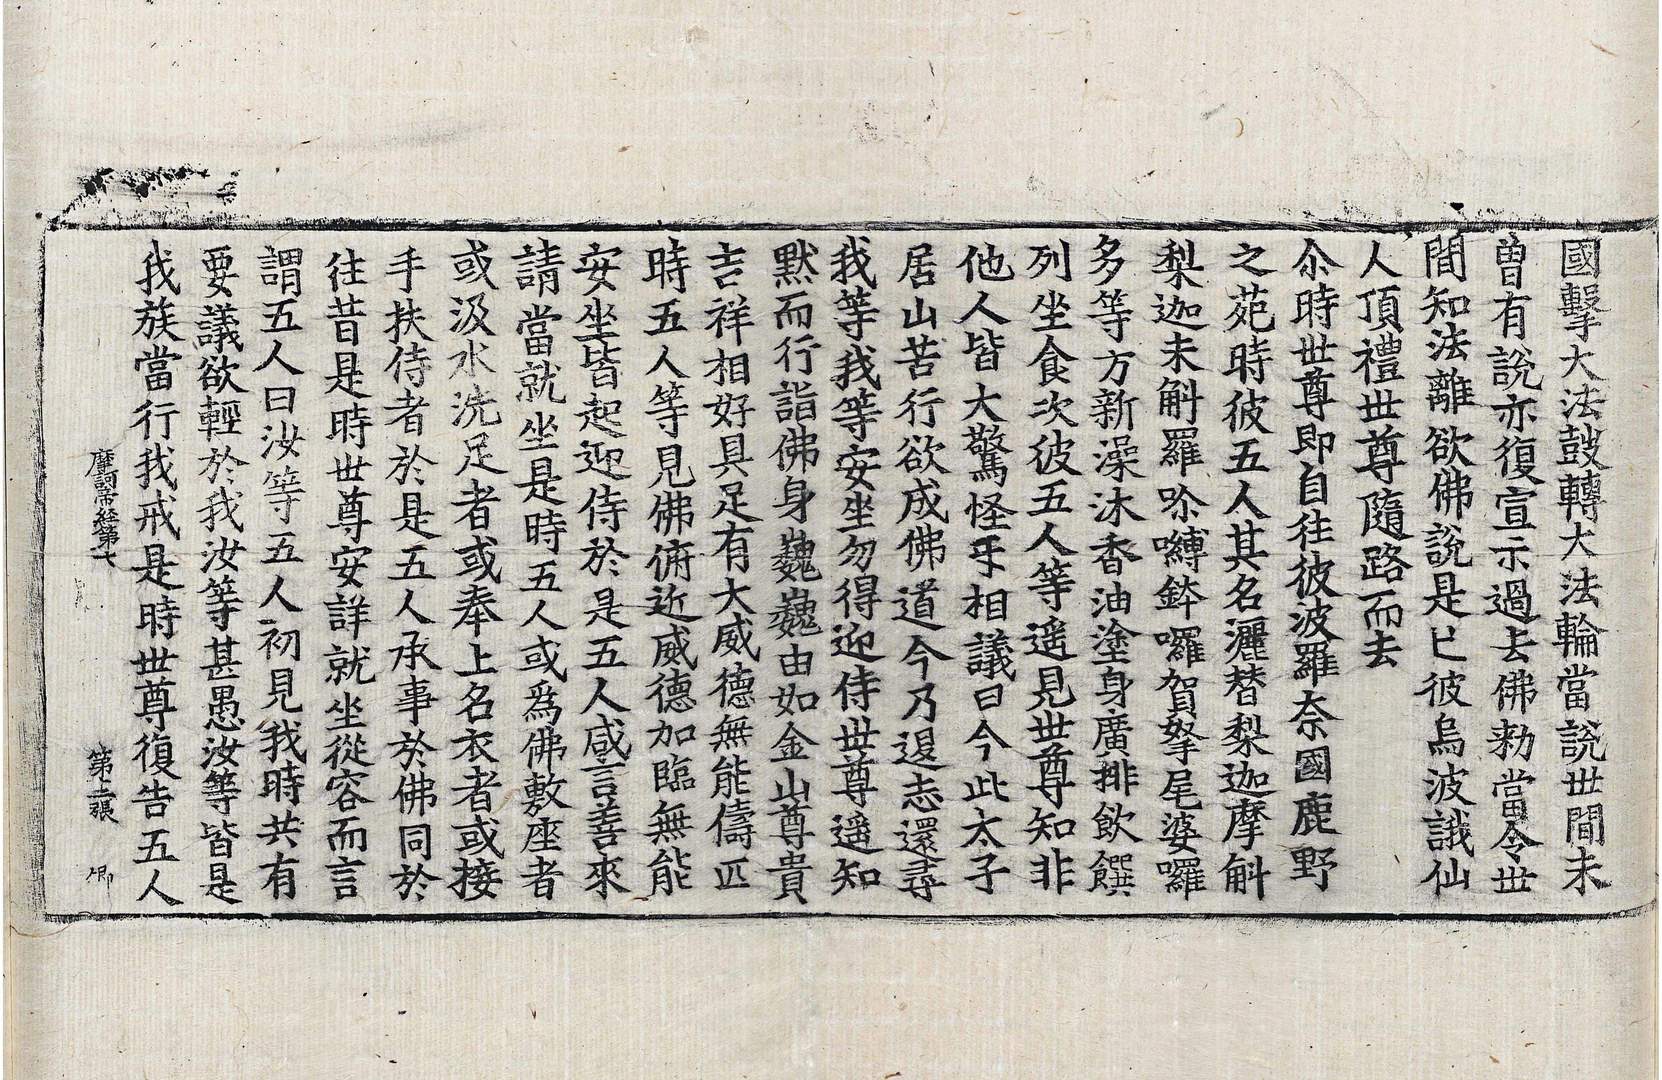 國擊大法鼓轉大法輪當說世間未
曾有說亦復宣示過去佛勑當令世
間知法離欲佛說是已彼烏波誐仙
人頂禮世尊隨路而去
尒時世尊即自往彼波羅奈國鹿野
之苑時彼五人其名灑替梨迦摩斛
梨迦未斛羅哆嚩鉢囉賀拏尾婆囉
多等方新澡沐香油塗身廣排飲饌
列坐食次彼五人等遥見世尊知非
他人皆大驚怪乎相議曰今此太子
居山苦行欲成佛道今乃退志還尋
我等我等安坐勿得迎侍世尊遥知
默而行詣佛身巍巍由如金山尊貴
吉祥相好具足有大威德無能儔匹
時五人等見佛俯近威德加臨無能
安坐皆起迎侍於是五人咸言善來
請當就坐是時五人或爲佛敷座者
或汲水洗足者或奉上名衣者或接
手扶侍者於是五人承事於佛同於
往昔是時世尊安詳就坐從容而言
謂五人曰汝等五人初見我時共有
要議欲輕於我汝等甚愚汝等皆是
我族當行我戒是時世尊復告五人
摩訶帝經第七 第十二張 卿